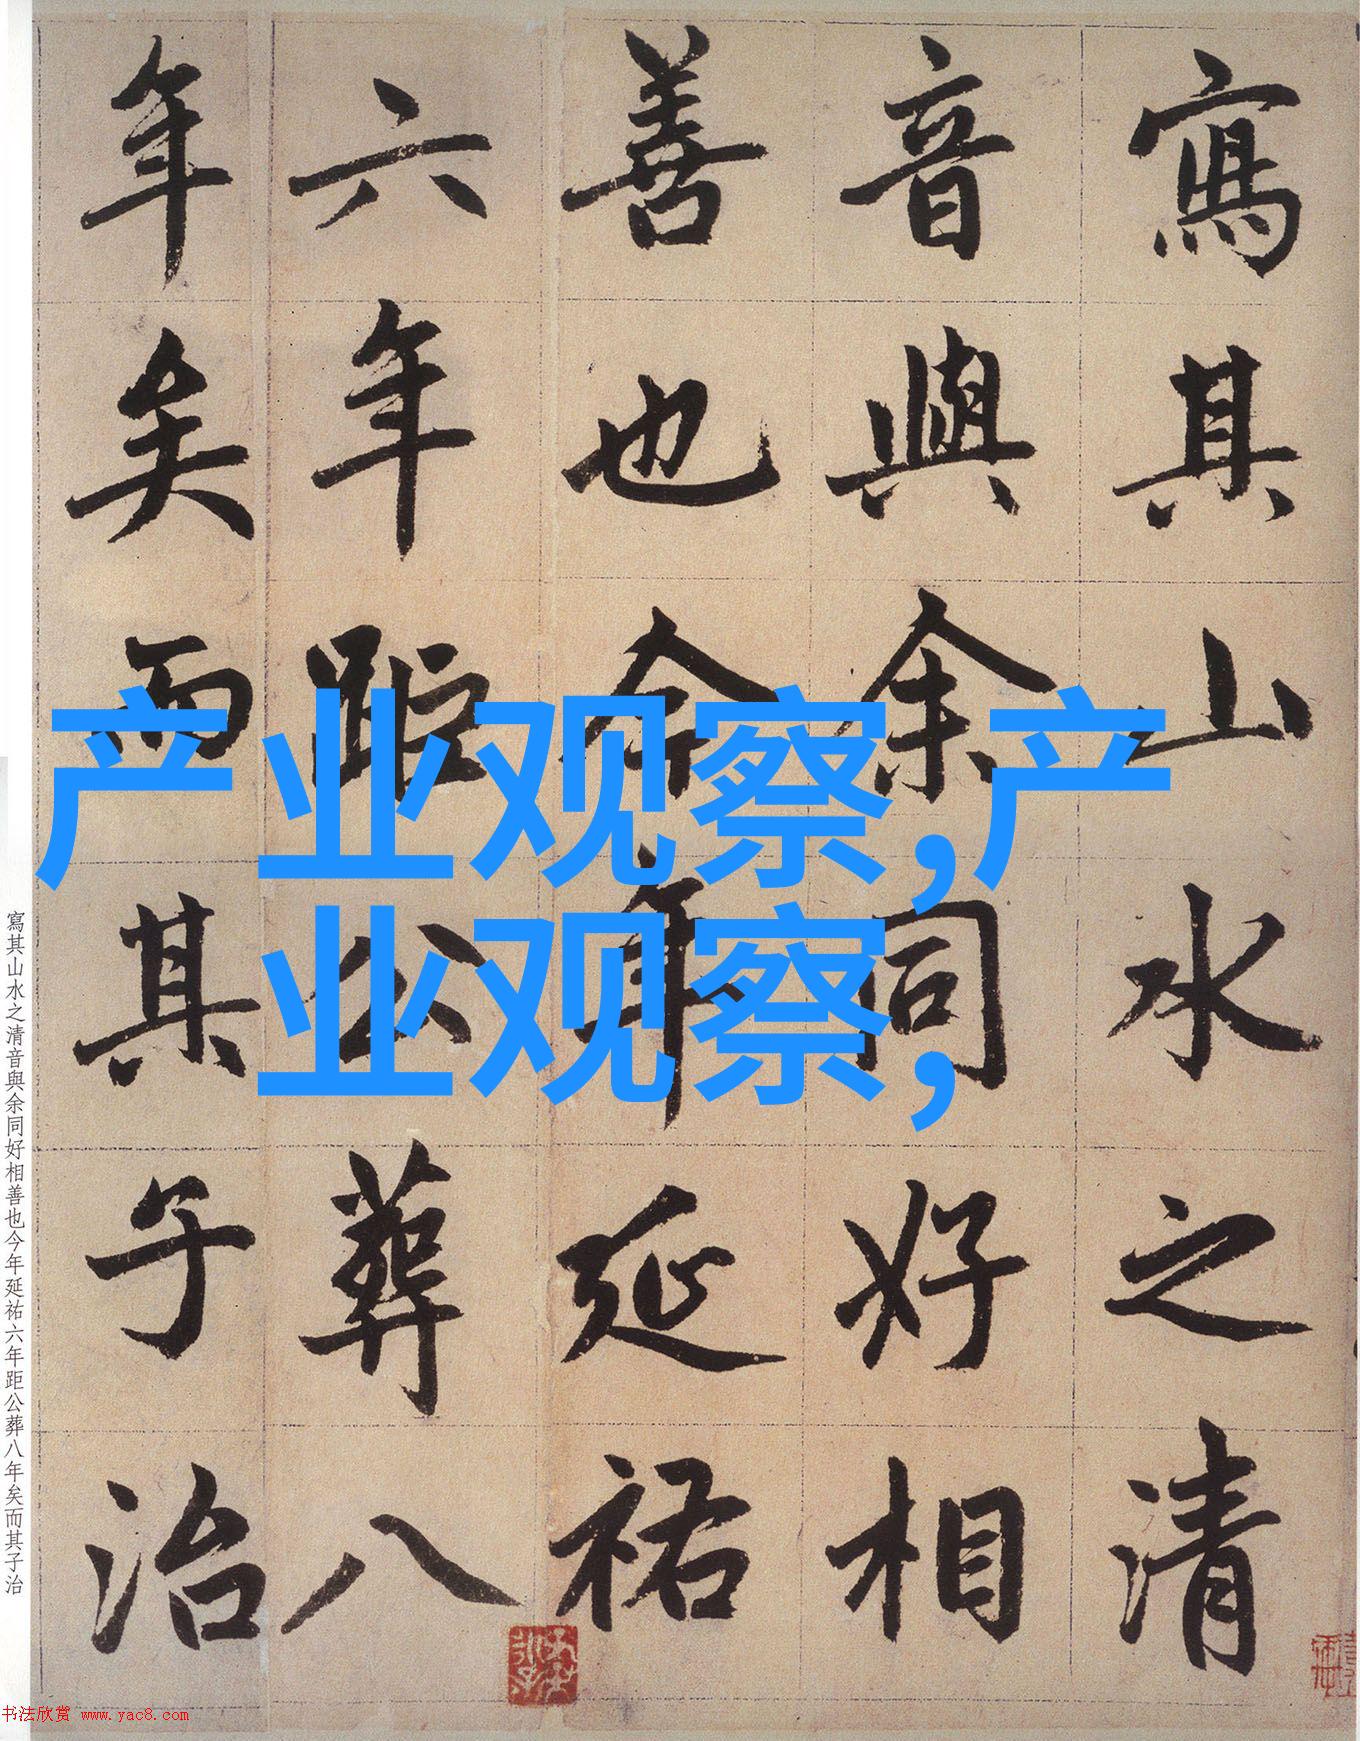 寫其山水之清
音與余同好相
善也今年延祐
六年距公葬八
年矣而其子治
产业观察,产
业观察,
寫其山水之清音與余同好相善也今年延祐六年距公葬八年矣而其子治
书法欣赏 www.yac8.com